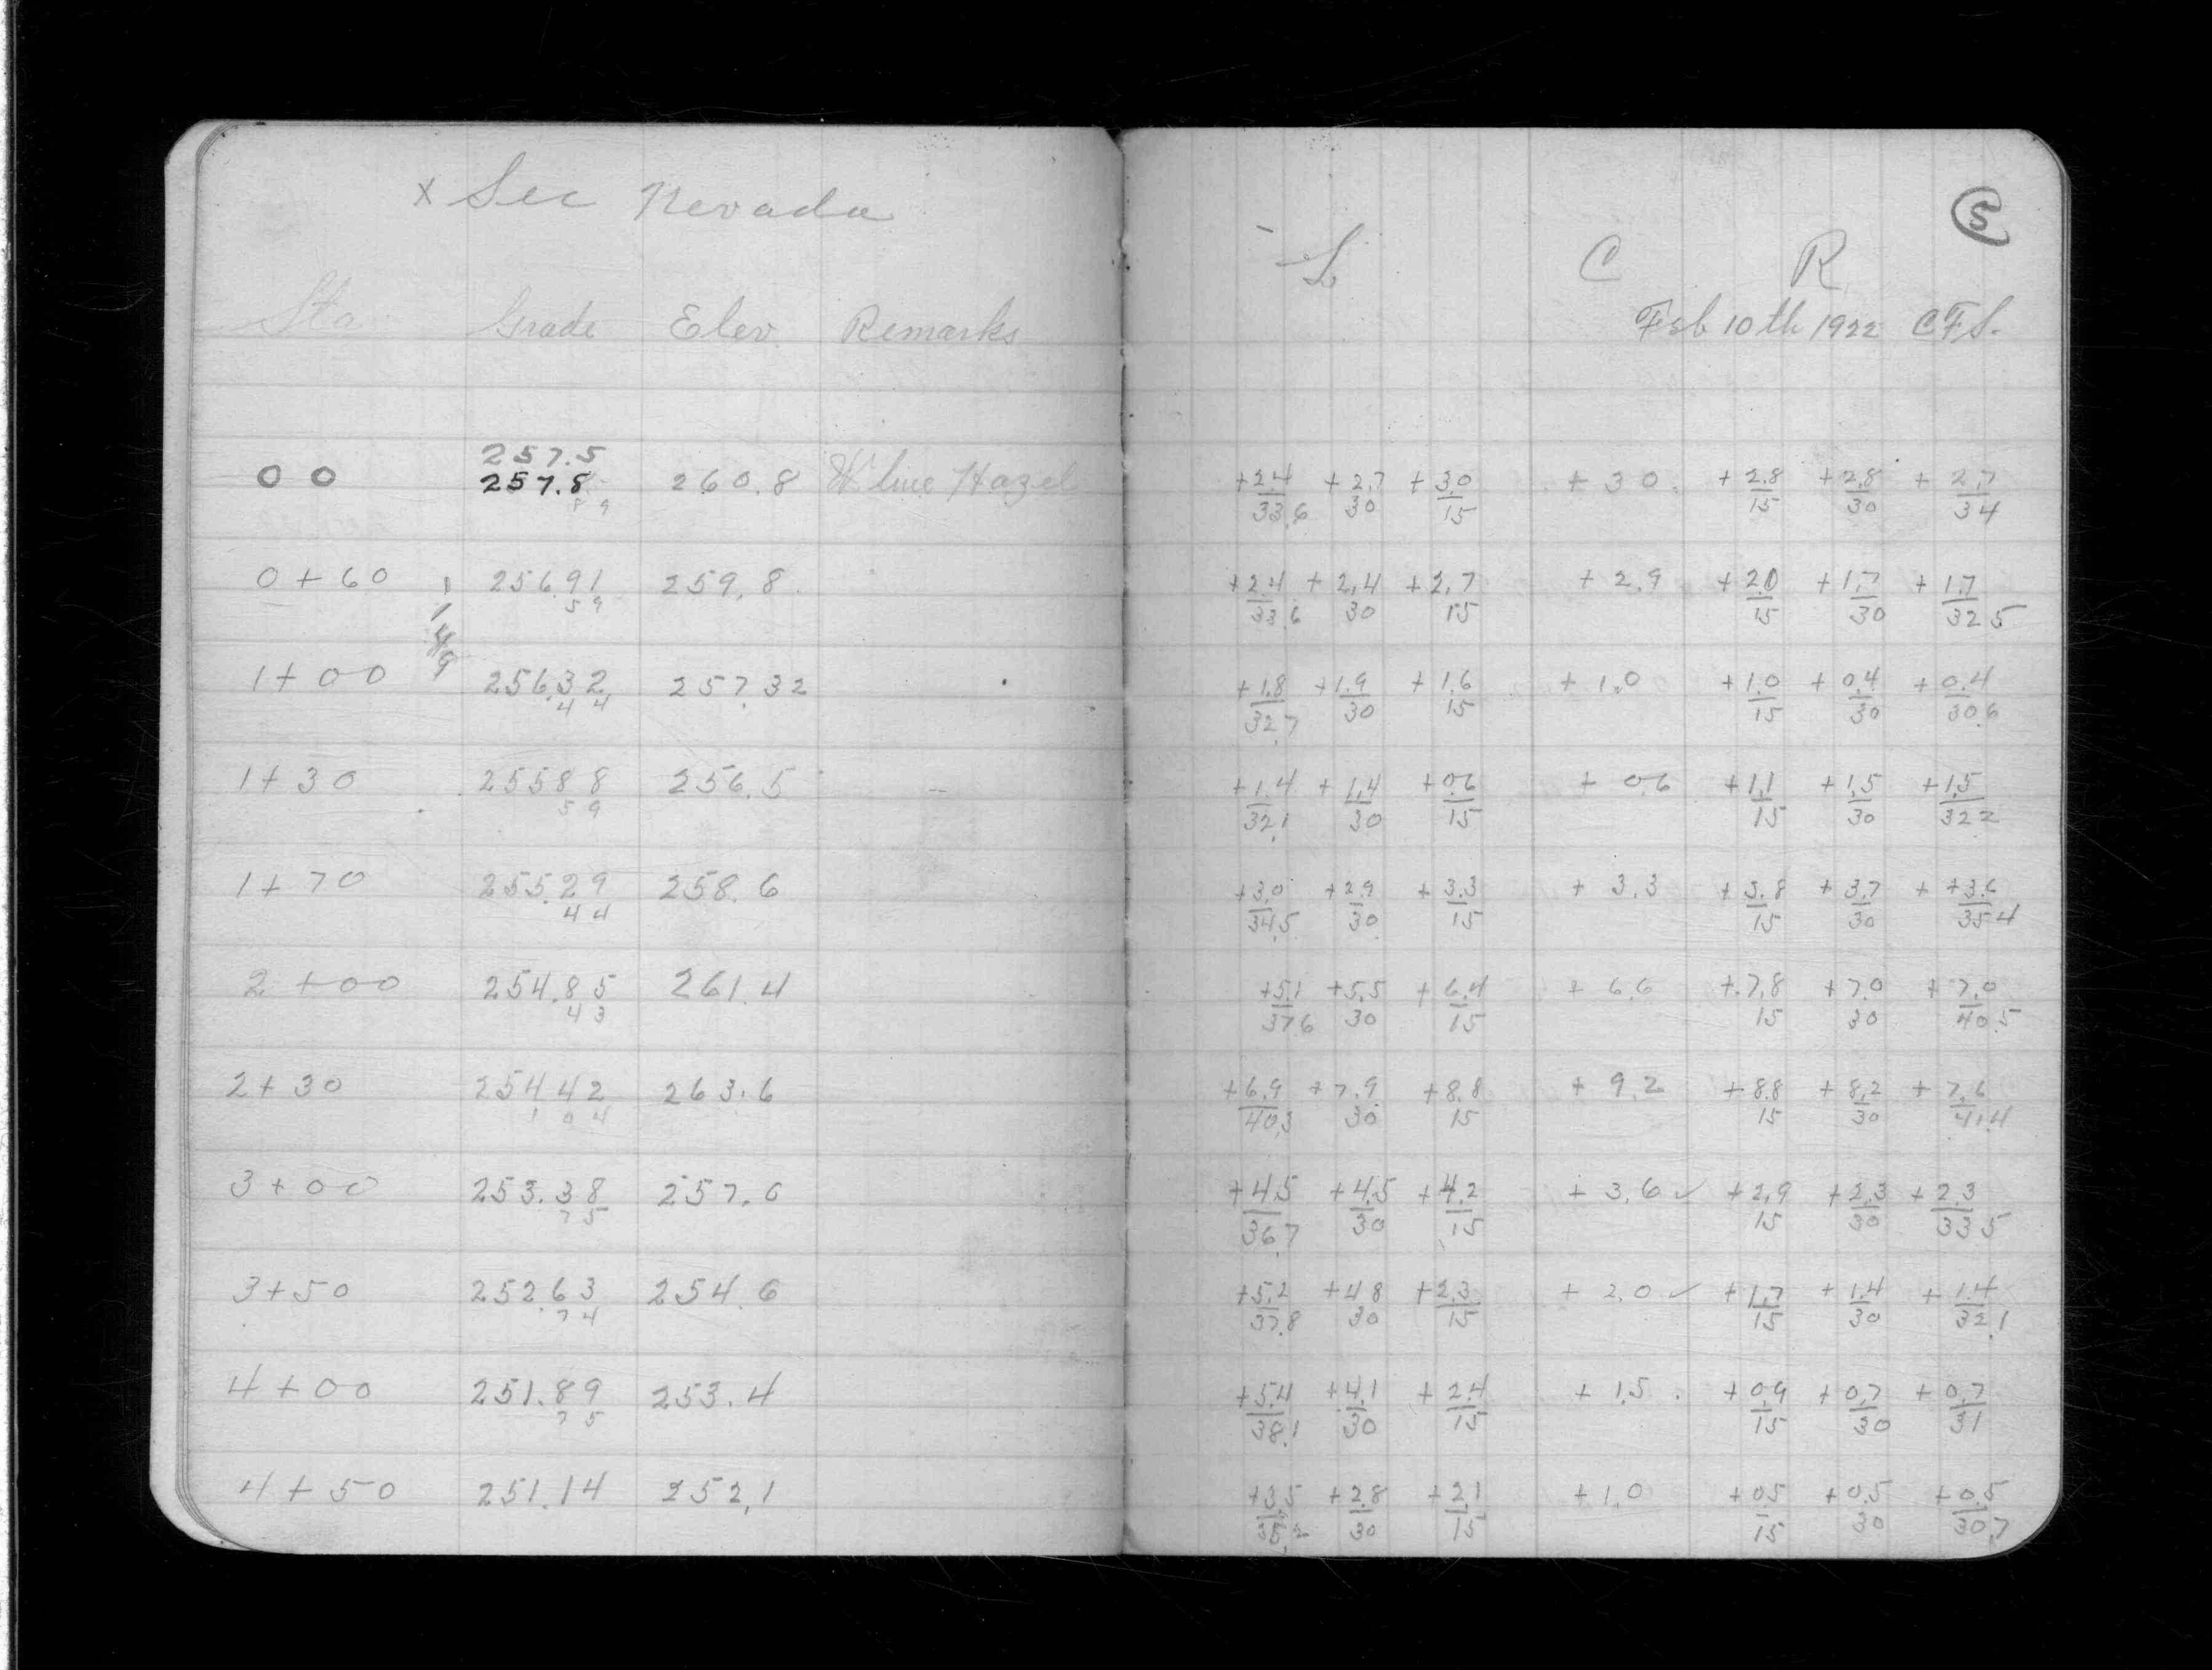 x Sec Nevada
Sta Grade Elev. Remarks
257.5
00 257.8 260.8 W. line Hazel
8 9
0+60 256.91 259.8
5 9
1+00 256.32 257.32
4 4
1+30 255 88 256.5
5 9
1+70 255.29 258.6
4 4
2+00 254.85 261.4
4 3
2+30 254 42 263.6
1 0 4
3+00 253.38 257.0
7 5
3+50 252.63 254.6
7 4
4+00 251.89 253.4
7 5
4+50 251.14 252.1
5
L C R
Feb 10th 1922 CFS.
+2.4 +2.7 +3.0 +3.0 +2.8 +2.8 +2.7
33.6 30 15 15 30 34
+2.4 +2.4 +2.7 +2.9 +2.0 +1.7 +1.7
33.6 30 15 15 30 32 5
+1.8 +1.9 +1.6 +1.0 +1.0 +0.4 +0.4
32.7 30 15 15 30 30.6
+1.4 +1.4 +0.6 +0.6 +1.1 +1.5 +1.5
32.1 30 15 15 30 32 2
+3.0 +2.9 +3.3 +3.3 +3.8 +3.7 + +3.6
34.5 30 15 15 30 35 4
+5.1 +5.5 +6.4 +6.6 +7.8 +7.0 +7.0
37 6 30 15 15 30 40.5
+6.9 +7.9 +8.8 +9.2 +8.8 +8.2 +7.6
40.3 30 15 15 30 41.4
+4.5 +4.5 +4.2 +3.6 ✓ +2.9 +2.3 +2.3
36.7 30 15 15 30 33 5
+5.2 +4 8 +2.3 +2.0 ✓ +1.7 +1.4 +1.4
37.8 30 15 15 30 32.1
+5.4 +4.1 +2.4 +1.5 +0.9 +0.7 +0.7
38.1 30 15 15 30 31
+3.5 +2.8 +2.1 +1.0 +0.5 +0.5 +0.5
35.2 30 15 15 30 30.7